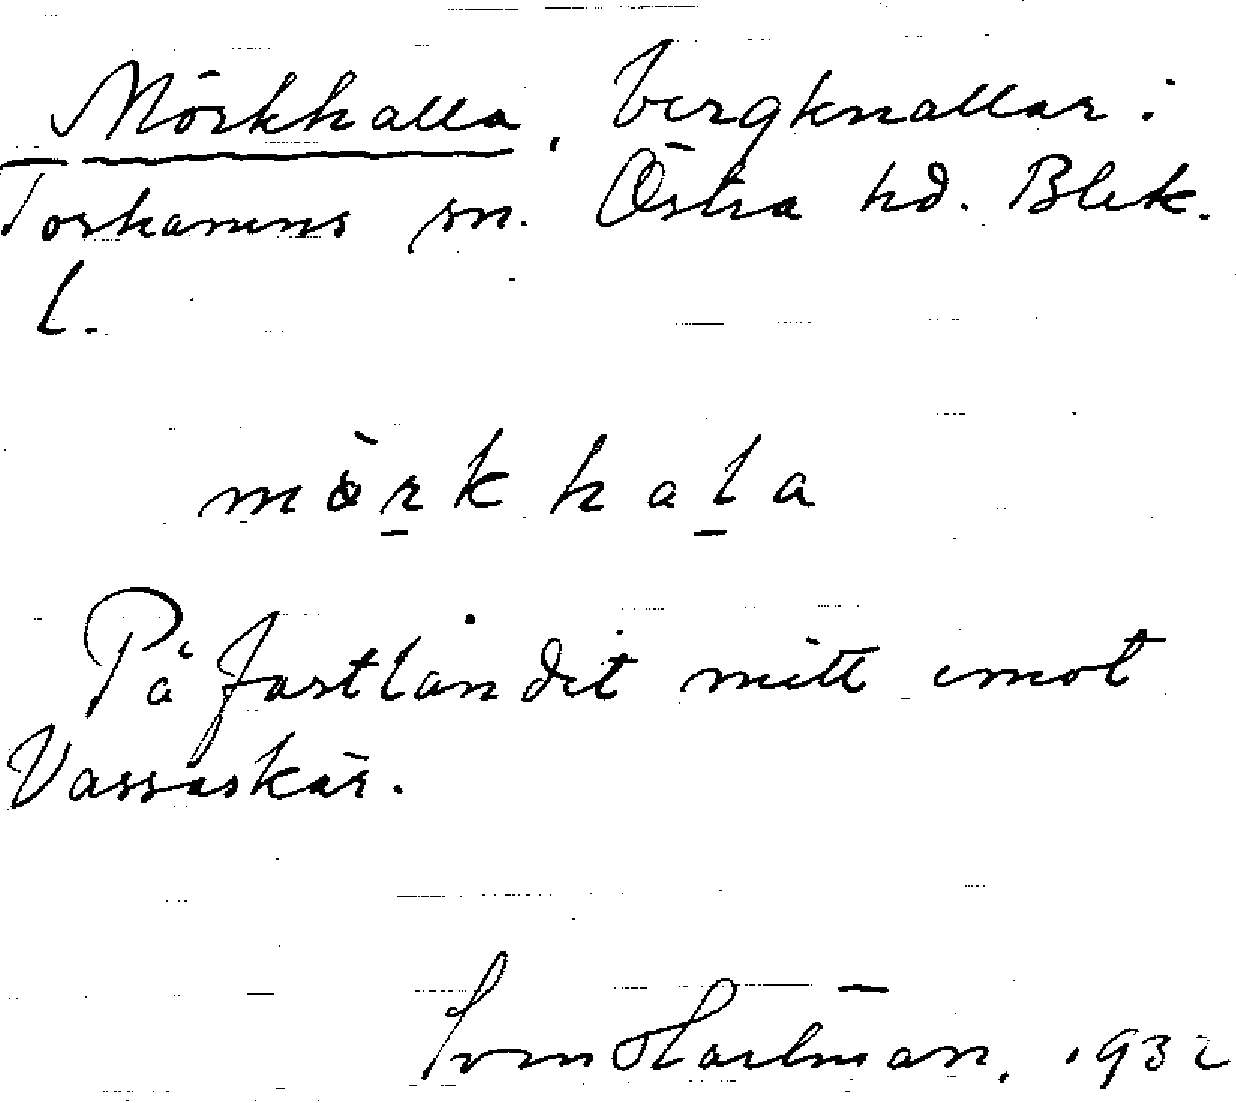 Mörkhalla, bergknallar i
Torhamns sn. Östra hd. Blek.
l.
mòrkhala
På fastlandet mitt emot
Vassaskär.
Sven Hartman. 1932